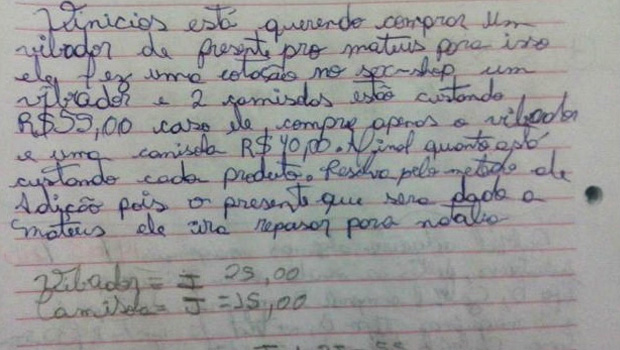 Vinicios está querendo comprar um
vibador de presente pro mateus para isso
ele fez uma cotação no sex-shop, um
vibrador e 2 camisolas estão custando
R$55,00 caso ele compre apenas o vibador
e uma camisola R$40,00. Afinal quanto está
custando cada produto. Resolva pelo metodo de
Adição pois o presente que sera dado a
mateus ele ira repasar para natalia
Vibador = I 25,00
Camisola = J = 15,00